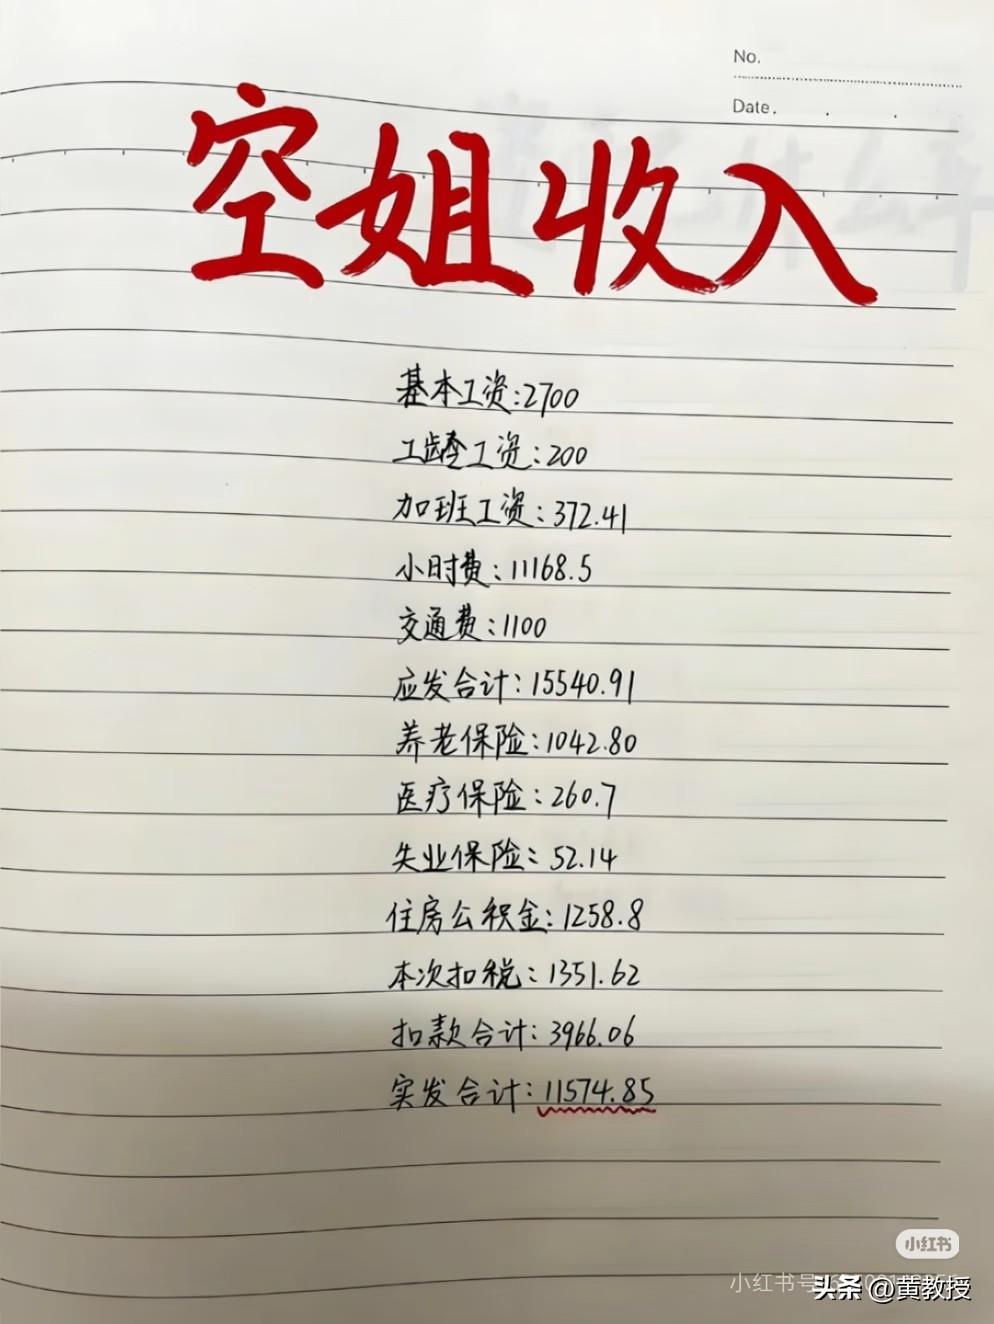 No.
Date.
空姐收入
基本工资:2700
工龄工资:200
加班工资:372.41
小时费:11168.5
交通费:1100
应发合计:15540.91
养老保险:1042.80
医疗保险:260.7
失业保险:52.14
住房公积金:1258.8
本次扣税:1351.62
扣款合计:3966.06
实发合计:11574.85
小红书
小红书号
头条 @黄教授